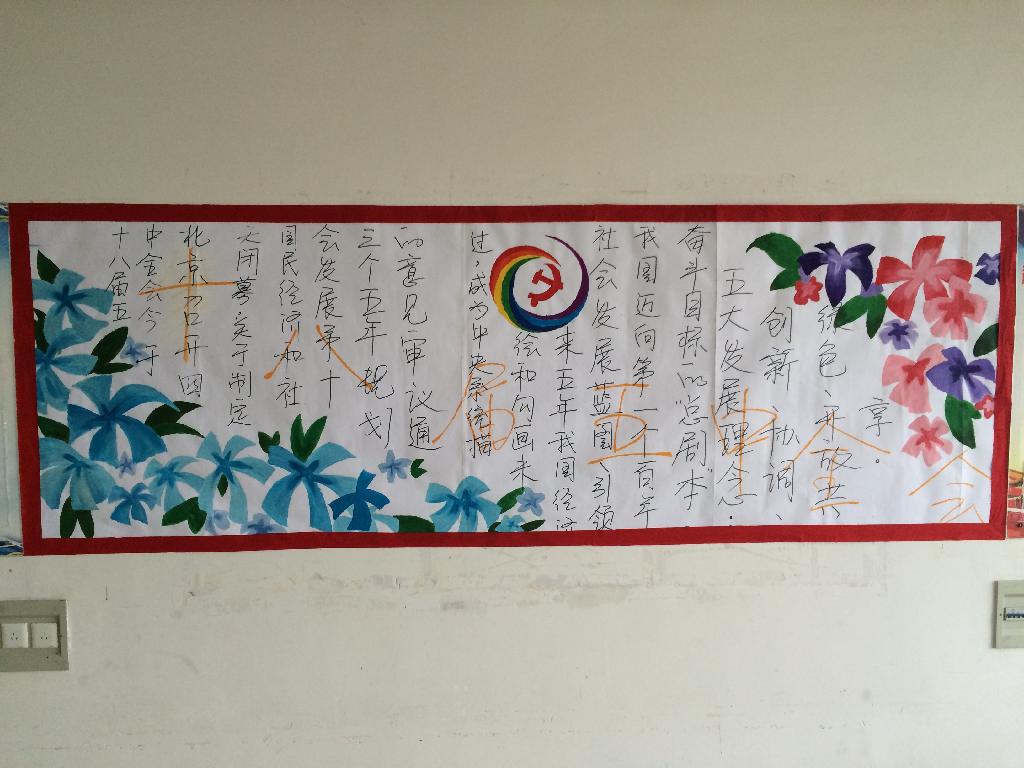 十八届五
中全会今于
北京召开
闭幕定于制定
国民经济和社
会发展第十
三个五年规划
的意见审议通
过，成为中央系统描
绘和勾画来
来五年我国经济
社会发展蓝图、引领
我国迈向第一个百年
奋斗目标的总剧本.
五大发展理念：
创新、协调、
绿色、开放、共
享。
十八届五中全会